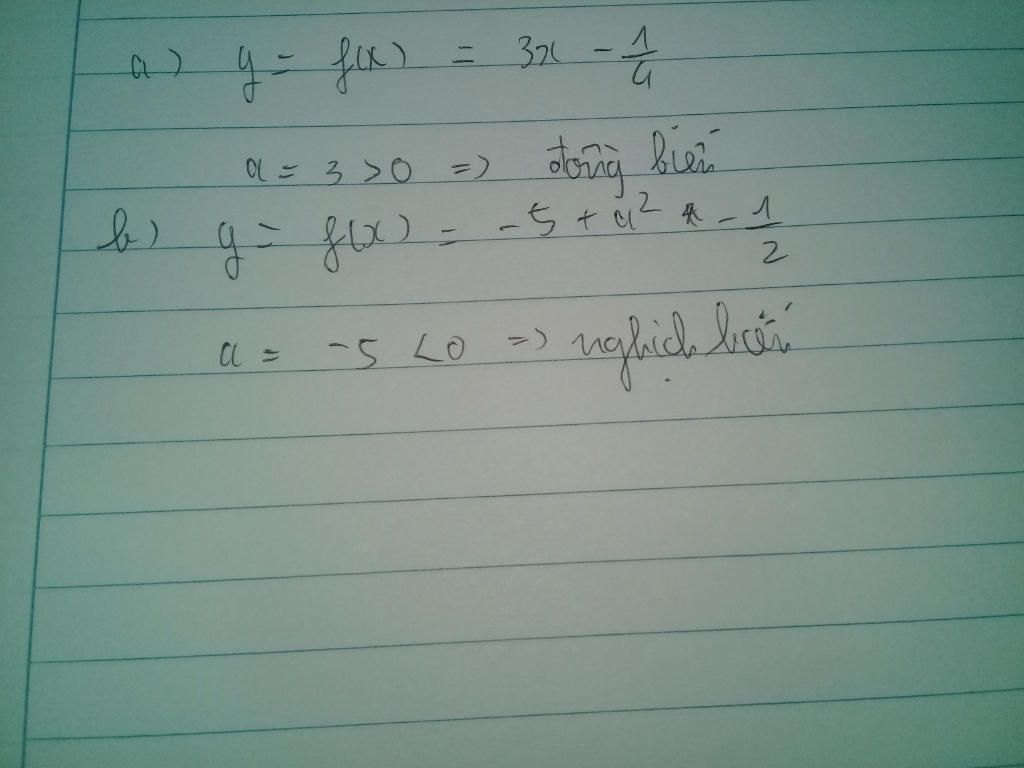 a) y = f(x) = 3x - 1/4
a = 3 > 0 => đồng biến
b) y = f(x) = -5 + 4² - 1/2
a = -5 < 0 => nghịch biến